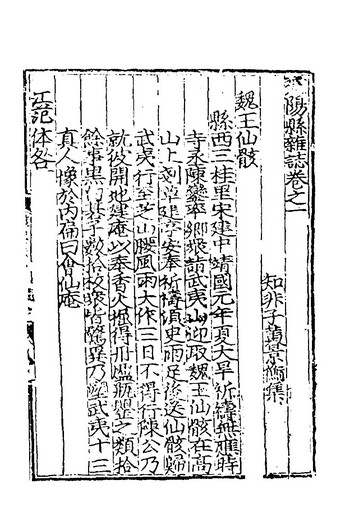 陽縣雜誌卷之一
知非子黃景昉集
魏王仙骸
縣西三桂里宋建中靖國元年夏大旱祈禱無應時
寺丞陳㷍率鄉眾詣武夷山迎取魏王仙骸在高
山上剗草建亭安奉祈禱須史雨足後送仙骸歸
武夷行至芝山驟風雨大作三日不得行陳公乃
就彼開地建庵以奉香火掘得爐瓶盟之類拾
餘事
數
眾皆驚異乃塑武夷十三
真人像於內偏曰會仙庵